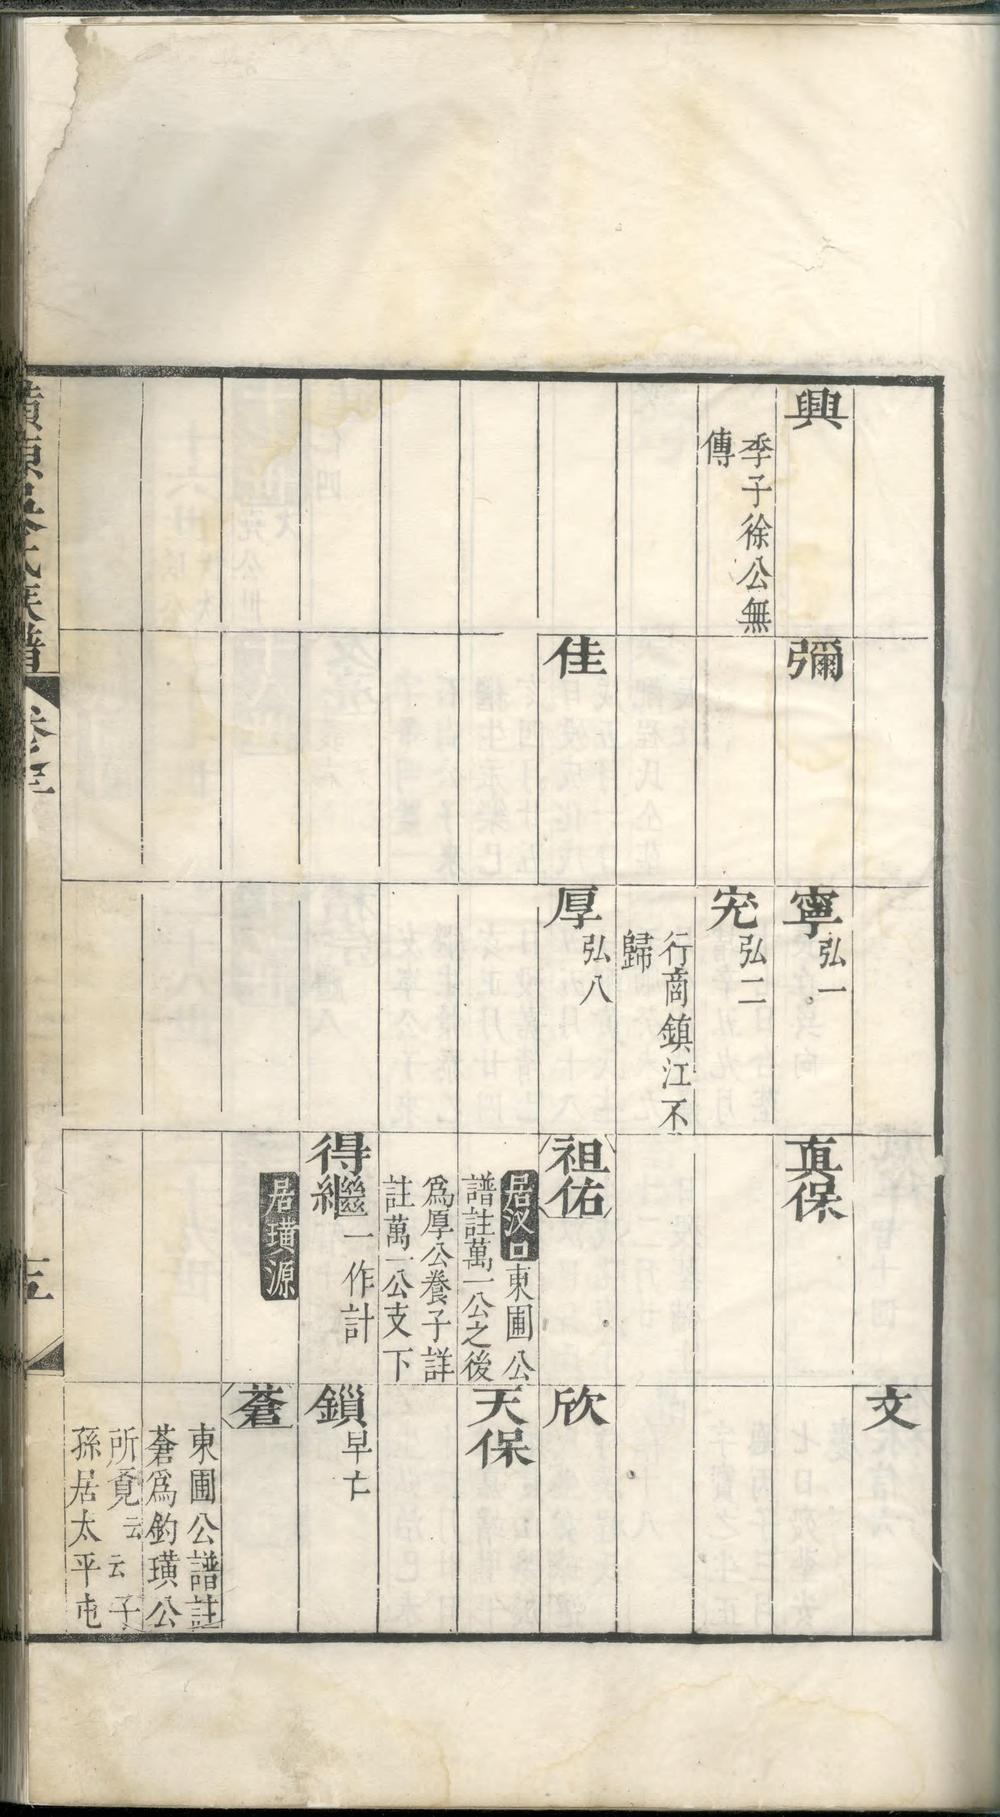 興
季子徐公無
傳
彌
佳
寧弘一
宄弘二
行商鎮江不
歸
厚弘八
真保
祖佑
居汊口東圃公
譜註萬一公之後
為厚公養子詳
註萬一公支下
得繼一作計
居璜源
文
欣
天保
鎻早亡
蒼
東圃公譜註
蒼爲鈞璜公
所覔云云子
孫居太平屯
璜源吳氏族譜
卷三
五